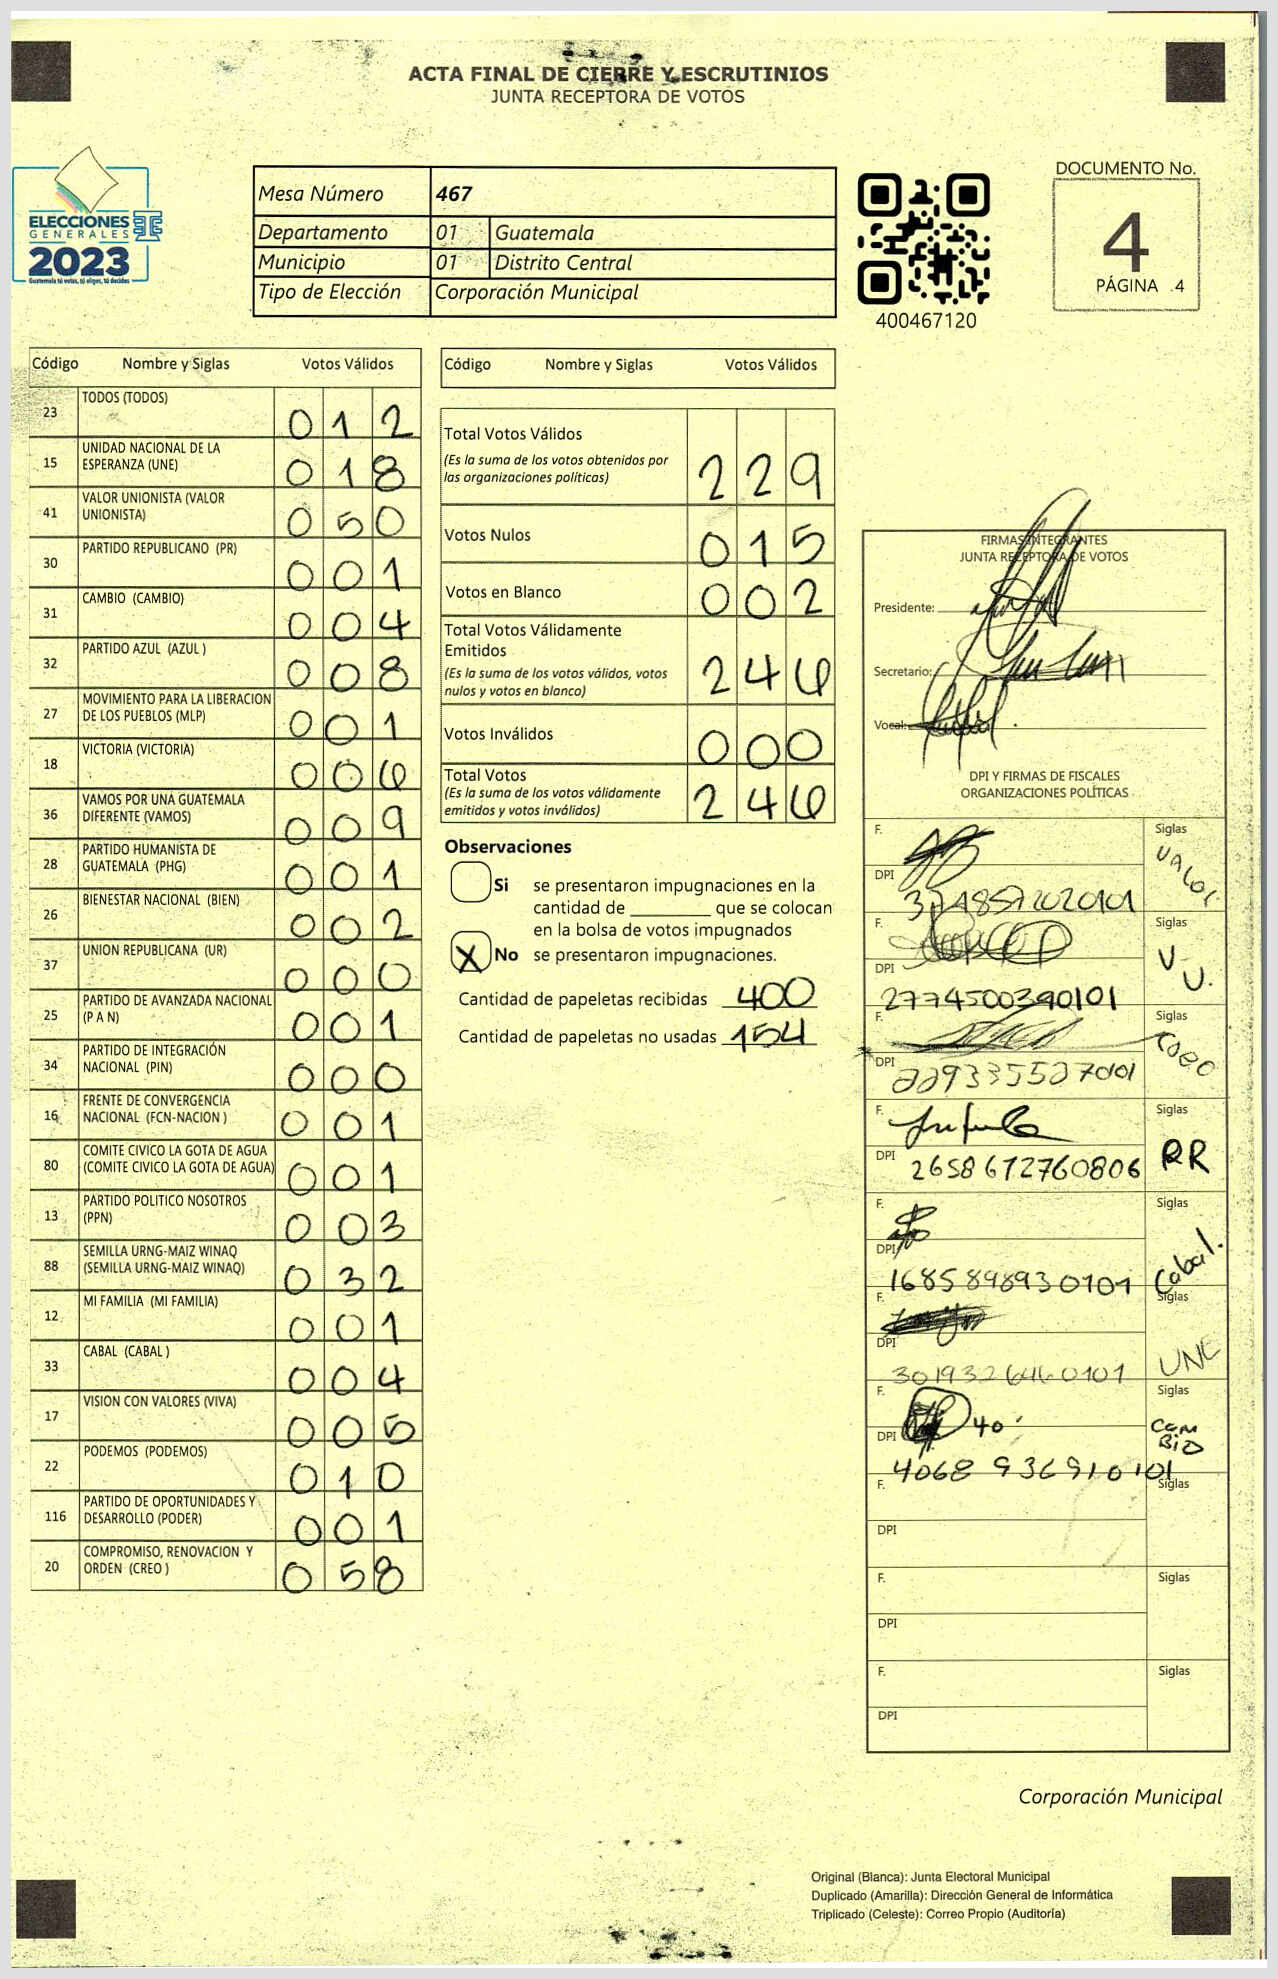 ACTA FINAL DE CIERRE Y ESCRUTINIOS
JUNTA RECEPTORA DE VOTOS
ELECCIONES
GENERALES
2023
Guatemala tú votas, tú eliges, tú decides
Mesa Número 467
Departamento 01 Guatemala
Municipio 01 Distrito Central
Tipo de Elección Corporación Municipal
400467120
DOCUMENTO No.
4
PÁGINA 4
Código Nombre y Siglas Votos Válidos
23 TODOS (TODOS) 0 1 2
15 UNIDAD NACIONAL DE LA
ESPERANZA (UNE) 0 1 8
41 VALOR UNIONISTA (VALOR
UNIONISTA) 0 5 0
30 PARTIDO REPUBLICANO (PR) 0 0 1
31 CAMBIO (CAMBIO) 0 0 4
32 PARTIDO AZUL (AZUL ) 0 0 8
27 MOVIMIENTO PARA LA LIBERACION
DE LOS PUEBLOS (MLP) 0 0 1
18 VICTORIA (VICTORIA) 0 0 6
36 VAMOS POR UNA GUATEMALA
DIFERENTE (VAMOS) 0 0 9
28 PARTIDO HUMANISTA DE
GUATEMALA (PHG) 0 0 1
26 BIENESTAR NACIONAL (BIEN) 0 0 2
37 UNION REPUBLICANA (UR) 0 0 0
25 PARTIDO DE AVANZADA NACIONAL
(P A N) 0 0 1
34 PARTIDO DE INTEGRACIÓN
NACIONAL (PIN) 0 0 0
16 FRENTE DE CONVERGENCIA
NACIONAL (FCN-NACION ) 0 0 1
80 COMITE CIVICO LA GOTA DE AGUA
(COMITE CIVICO LA GOTA DE AGUA) 0 0 1
13 PARTIDO POLITICO NOSOTROS
(PPN) 0 0 3
88 SEMILLA URNG-MAIZ WINAQ
(SEMILLA URNG-MAIZ WINAQ) 0 3 2
12 MI FAMILIA (MI FAMILIA) 0 0 1
33 CABAL (CABAL ) 0 0 4
17 VISION CON VALORES (VIVA) 0 0 5
22 PODEMOS (PODEMOS) 0 1 0
116 PARTIDO DE OPORTUNIDADES Y
DESARROLLO (PODER) 0 0 1
20 COMPROMISO, RENOVACION Y
ORDEN (CREO ) 0 5 8
Código Nombre y Siglas Votos Válidos
Total Votos Válidos
(Es la suma de los votos obtenidos por
las organizaciones políticas) 2 2 9
Votos Nulos 0 1 5
Votos en Blanco 0 0 2
Total Votos Válidamente
Emitidos
(Es la suma de los votos válidos, votos
nulos y votos en blanco) 2 4 6
Votos Inválidos 0 0 0
Total Votos
(Es la suma de los votos válidamente
emitidos y votos inválidos) 2 4 6
Observaciones
Si se presentaron impugnaciones en la
cantidad de ________ que se colocan
en la bolsa de votos impugnados
X No se presentaron impugnaciones.
Cantidad de papeletas recibidas 400
Cantidad de papeletas no usadas 154
FIRMAS INTEGRANTES
JUNTA RECEPTORA DE VOTOS
Presidente:
Secretario:
Vocal:
DPI Y FIRMAS DE FISCALES
ORGANIZACIONES POLÍTICAS
F. Siglas
Valor
DPI
F. Siglas
V.U.
DPI 2774500390101
F. Siglas
DPI
F. Siglas
DPI 2658612760806 RR
F. Siglas
DPI 1685898930101 Cabal.
F. Siglas
DPI 3019326460101 UNE
F. Siglas
40 CAMBIO
DPI 4068 936910101
F. Siglas
DPI
F. Siglas
DPI
F. Siglas
DPI
Corporación Municipal
Original (Blanca): Junta Electoral Municipal
Duplicado (Amarilla): Dirección General de Informática
Triplicado (Celeste): Correo Propio (Auditoría)